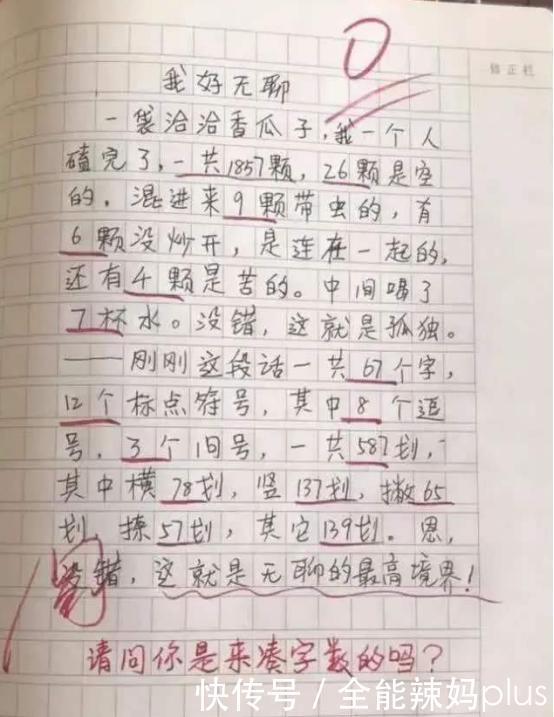 0
修正栏
我好无聊
一袋洽洽香瓜子,我一个人
磕完了,一共1857颗,26颗是空
的,混进来9颗带虫的,有
6颗没炒开,是连在一起的,
还有4颗是苦的。中间喝了
7杯水。没错,这就是孤独。
——刚刚这段话一共67个字,
12个标点符号,其中8个逗
号,3个旧号,一共587划,
其中横78划,竖137划,撇65
划 捺57划,其它139划。恩,
没错,这就是无聊的最高境界!
请问你是来凑字数的吗?
快传号/全能辣妈plus